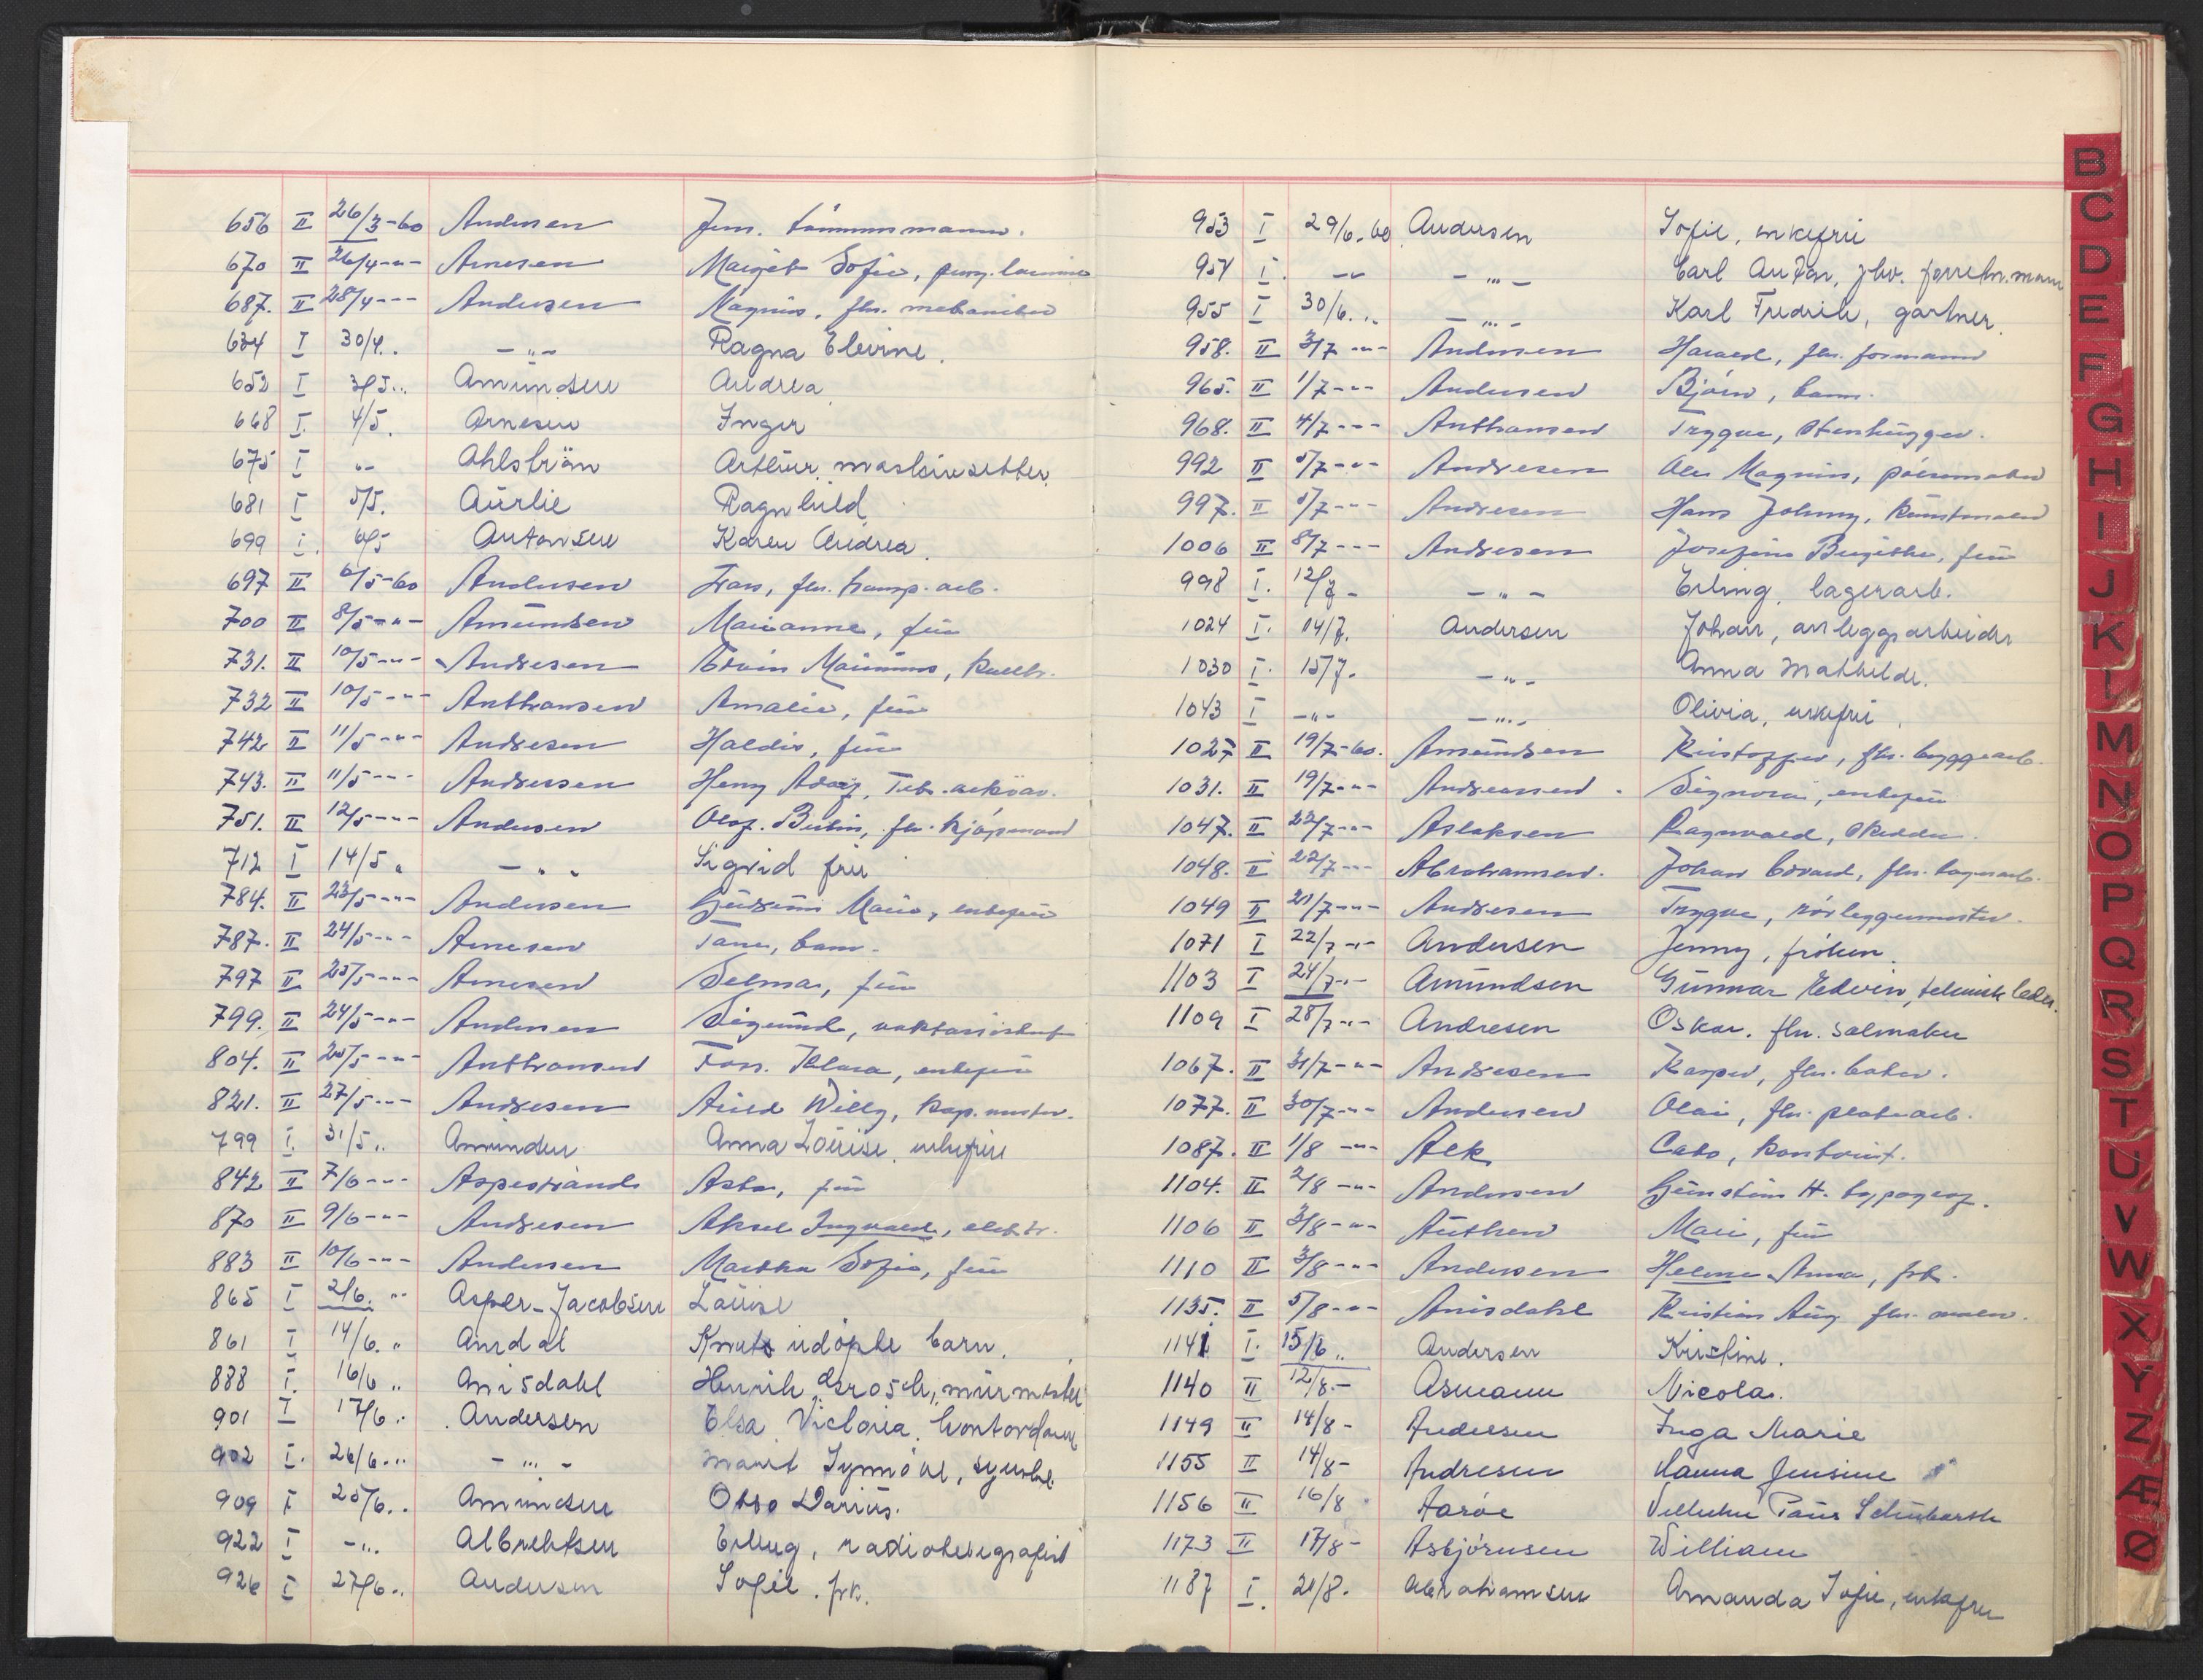 656 II 26/3-60 Andersen Jens. tömmermann.
670 II 26/4-"- Arnesen Margit Sofie, pens.
687. II 28/4-"- Andersen Magnus, fhv. mekaniker
634 I 30/4.. -"- Ragna Elevine.
652 I 3/5.. Amundsen Andrea
668 I. 4/5. Arnesen Inger
675 I "- Ahlström Arthur, maskinsetter.
681 I 5/5. Aurlie Ragnhild
699 I. 6/5 Antonsen Karen Andrea.
697 II 6/5-60 Andersen Frans, fhv. transp. arb.
700 II 8/5-"- Amundsen Marianne, frü
731. II 10/5-"- Andresen Edvin Marinius,
732 II 10/5-"- Anthonsen Amalie, frü
742 II 11/5-"- Andresen Haldis, frü
743. II 11/5-"- Andreassen Henry Adolf,
751. II 12/5-"- Andersen Olaf. Bertin, fhv. kjöpmand
712 I 14/5 " - " " Sigrid frü
784. II 23/5-"- Andersen Marie, enkefrü
787. II 24/5-"- Arnesen Tane, barn.
797 II 25/5-"- Arnesen Selma, frü
799. II 24/5-"- Andersen Sigund, vaktassistent
804. II 25/5-"- Anthonsen Klara, enkefrü
821. II 27/5-"- Andresen Willy,
799 I. 31/5.. Amundsen Anna Louise. enkefrü
842 II 7/6-"- Aspestrand Asta, frü
870 II 9/6-"- Andresen Aksel Ingvald, elektr.
883 II 10/6-"- Andersen Martha Sofie, frü
865 I 2/6. " Asper-Jacobsen Louise
861 I 14/6. " Amdal Knut udöpte barn.
888 I. 16/6 " Anisdahl Henrik Grosch, mürmester
901 I 17/6.. Andersen Elsa Victoria. kontordame
902 I. 26/6... - "' - Marit Synnöve, syerske
909 I 25/6.. Amundsen Otto Darius.
922 I -"- Albrektsen Erling, radiotelegrafist
926 I 27/6.. Andersen Sofie. frk.
953 I 29/6.60 Andersen Sofie, enkefrü
954 I. -"- -"'- Carl Anton, fhv. forretn.mann
955 I 30/6... -"'- Karl Fredrik, gartner.
958. II 3/7-"- Andersen Harald, fhv. formann
965. II 1/7-"- Andersen Björn, barn.
968. II 4/7-"- Anthonsen Trygve, Stenhügger.
992 II 5/7-"- Andresen Ole Magnus, pölsemaker
997. II 5/7-"- Andresen Hans Johnny, künstmaler
1006 II 8/7-"- Andresen Josefine Birgithe, frü
998 I. 12/7- -"- Erling, lagerarb.
1024 I. 14/7. Andersen Johan, anleggsarbeider
1030 I. 15/7. -"- Anna Mathilde.
1043 I -"- -"'- Olivia, enkefrü.
1027 II 19/7-60. Amundsen Kristoffer, fhv. byggearb.
1031. II 19/7-"- Andreassen Signora, enkefrü
1047. II 22/7-"- Aslaksen Ragnvald, Skredder.
1048. II 22/7-"- Abrahamsen. Johan Edvard, fhv. lagerarb.
1049 II 21/7-"- Andresen Trygve, rörleggermester.
1071 I 22/7-"- Andersen Jenny, fröken.
1103 I 24/7-"- Amundsen Günnar Edvin, teknisk leder.
1109 I 28/7-"- Andresen Oskar. fhv. salmaker
1067. II 31/7-"- Andresen Kasper, fhv. baker.
1077. II 30/7-"- Andersen Olai, fhv. platearb.
1087. II 1/8-"- Alk Cato, kontorist.
1104. II 2/8-"- Andersen Günstein H. typograf.
1106 II 3/8-"- Authen Marie, frü
1110 II 3/8-"- Andersen Helene Anna, frk.
1135. II 5/8-"- Anisdahl Kristian Aug. fhv. maler.
1141 I. 15/6.. Andersen Kristine.
1140 II 12/8.- Asmann Nicolai.
1149 II 14/8- Andersen Inga Marie
1155 II 14/8- Andresen Hanna Jensine
1156 II 16/8 Aaröe Vilhelm Paus Schubarth
1173 II 17/8- Asbjörnsen William
1187 I. 21/8. Abrahamsen Amanda Sofie, enkefru
B
C
D
E
F
G
H
I
J
K
L
M
N
O
P
Q
R
S
T
U
V
W
X
Y
Z
Æ
Ø